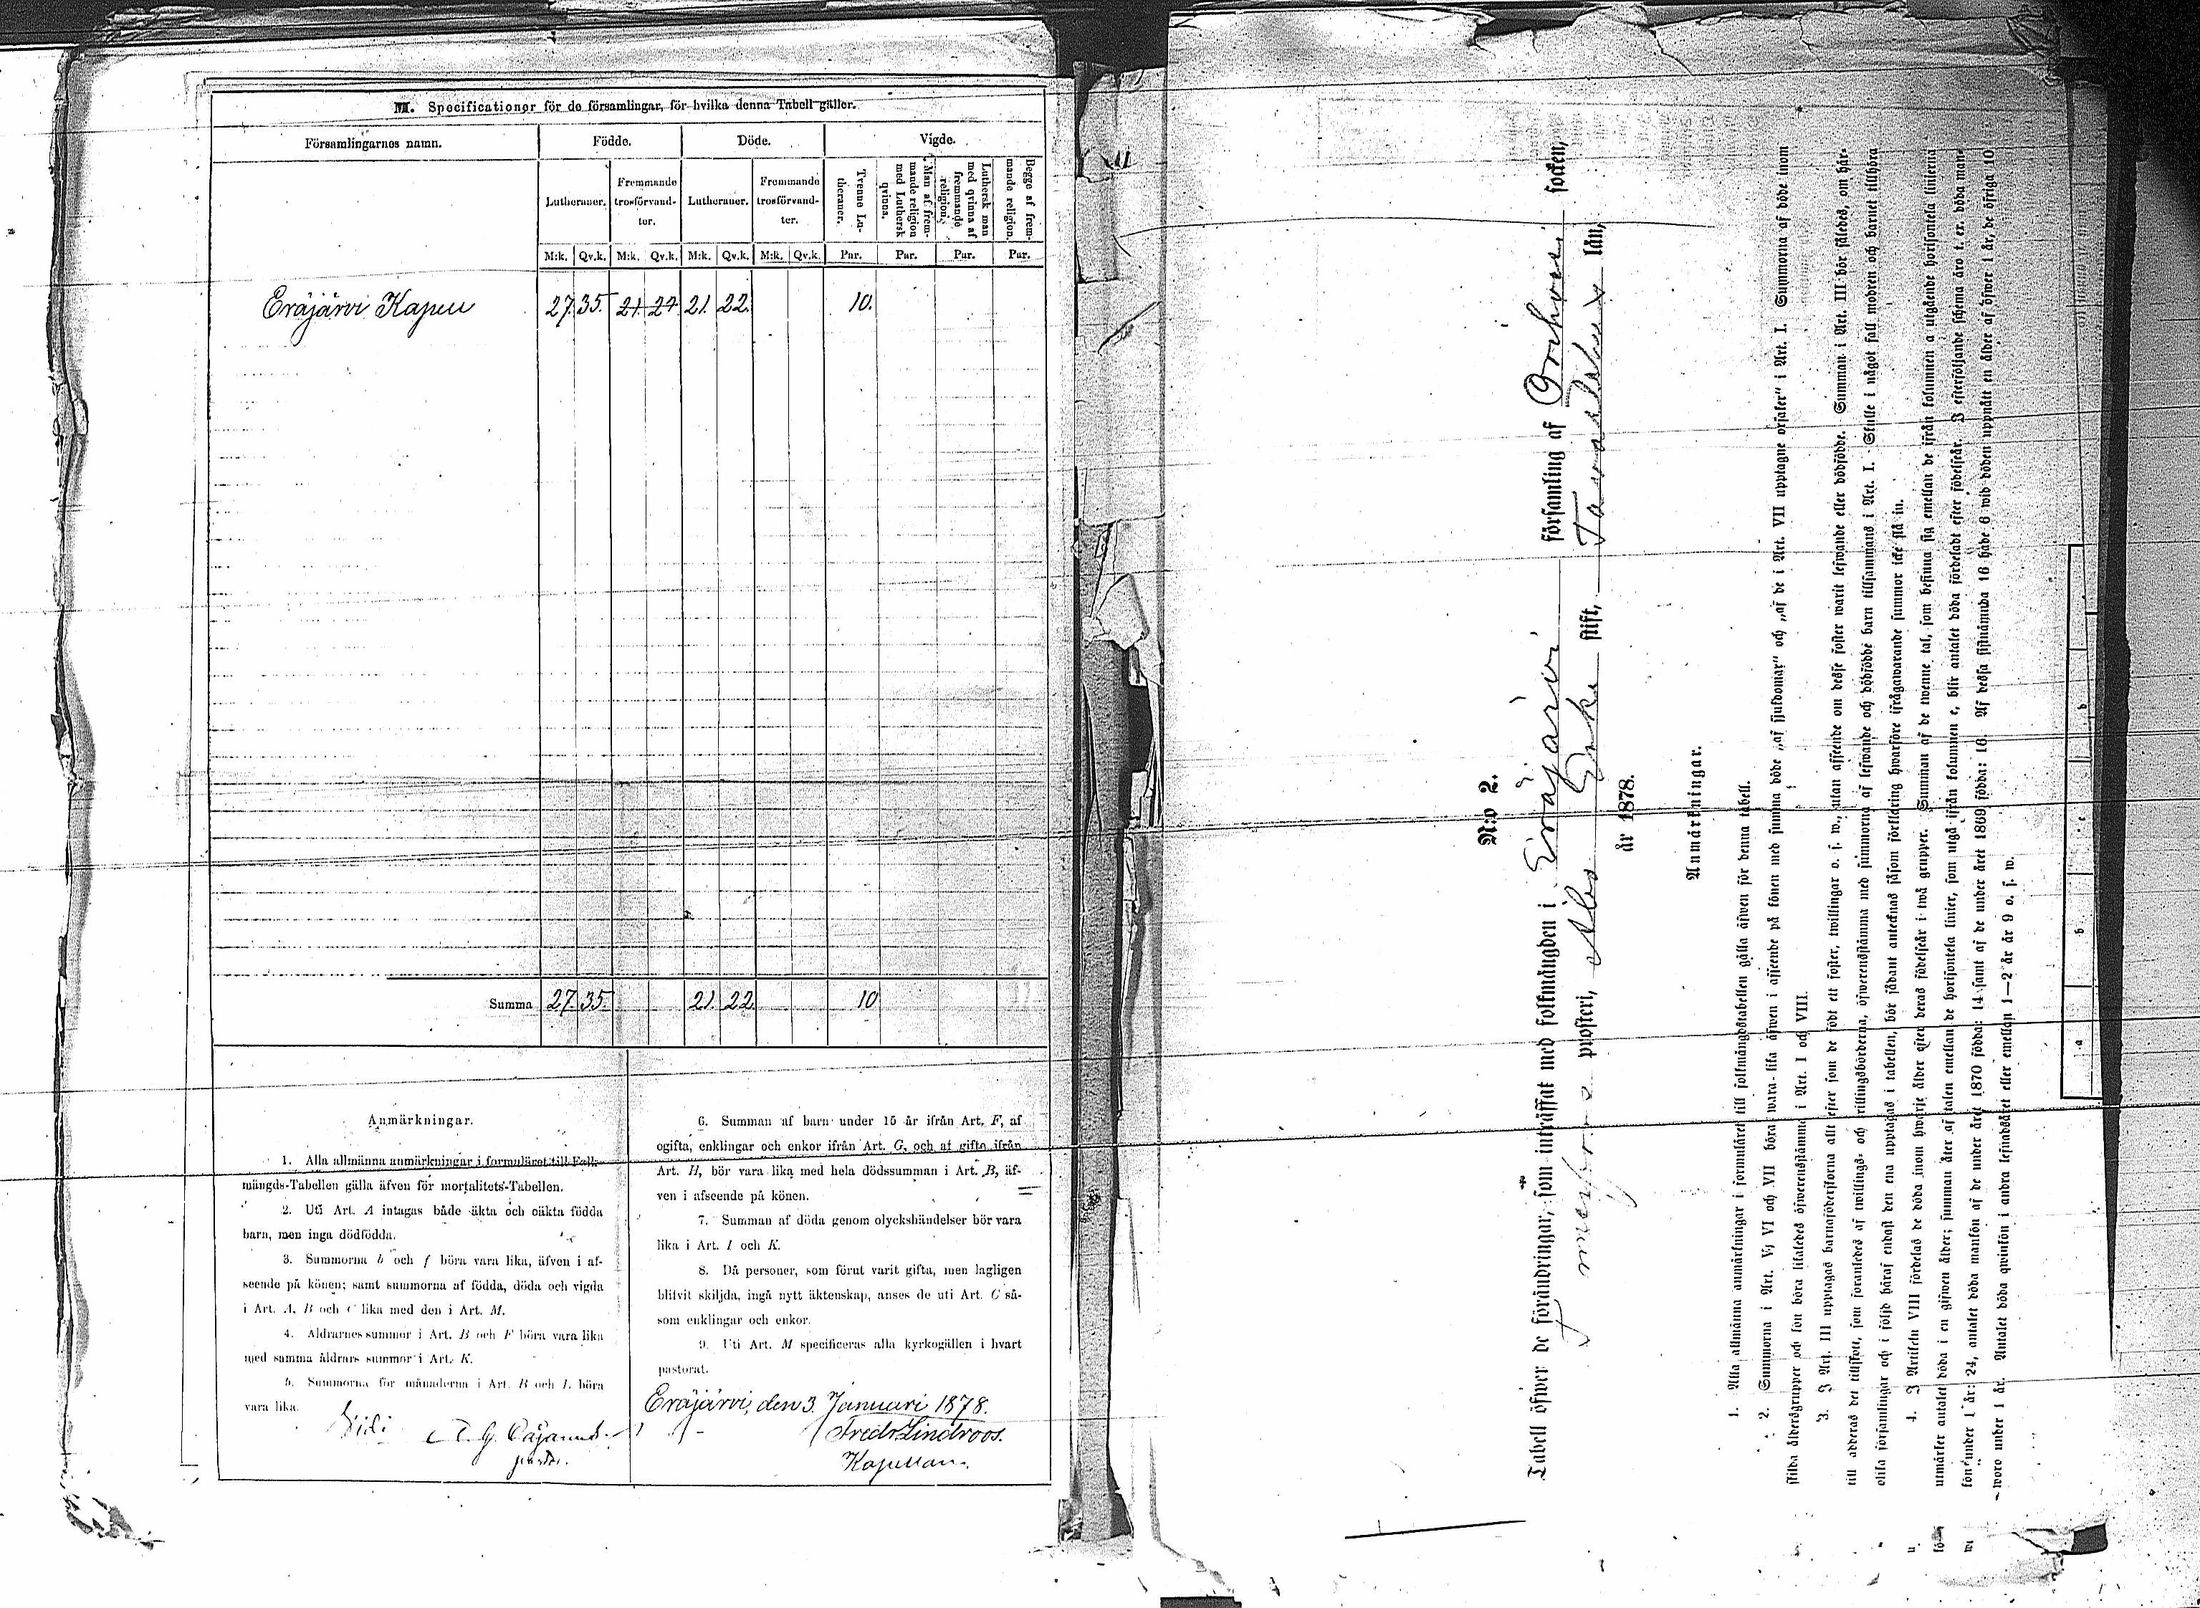 M. Specificationer för de församlingar, för hvilka denna Tabell gäller.
Församlingarnes namn. Födde. Döde. Vigde.
Lutheraner. Fremmande trosförvandter. Lutheraner. Fremmande trosförvandter. Trenne Lutheraner. Man af fremmande religion med Luthersk qvinna. Luthersk man med qvinna af fremmande religion. Begge af fremmande religion.
M:k. Qv.k. M:k. Qv.k. M:k. Qv.k. M:k. Qv.k. Par. Par. Par. Par.
Eräjärvi Kapell 27. 35. 21 22 21. 22. 10.
Summa 27. 35. 21. 22 10
Anmärkningar.
1. Alla allmänna anmärkningar i formuläret till Folk-
mängds-Tabellen gälla äfven för mortalitets-Tabellen.
2. Uti Art. A intagas både äkta och oäkta födda
barn, men inga dödfödda.
3. Summorna b och f böra vara lika, äfven i af-
seende på könen; samt summorna af födda, döda och vigda
i Art. A, B och C lika med den i Art. M.
4. Åldrarnes summor i Art. B och F böra vara lika
med samma åldrars summor i Art. K.
5. Summorna för månaderna i Art. B och L böra
vara lika.
Vidi
A. G.
6. Summan af barn under 15 år ifrån Art. F, af
ogifta, enklingar och enkor ifrån Art. G, och af gifta ifrån
Art. H, bör vara lika med hela dödssumman i Art. B, äf-
ven i afseende på könen.
7. Summan af döda genom olyckshändelser bör vara
lika i Art. I och K.
8. Då personer, som förut varit gifta, men lagligen
blifvit skiljda, ingå nytt äktenskap, anses de uti Art. C så-
som enklingar och enkor.
9. Uti Art. M specificeras alla kyrkogällen i hvart
pastorat.
Eräjärvi, den 3 Januari 1878.
Fredr Lindroos.
Kapellan.
N:o 2.
Tabell öfwer de förändringar, som inträffat med folkmängden i Eräjärvi församling af Orihvesi socken,
prosteri, Åbo Erke stift, Tavastehus län,
år 1878.
Anmärkningar.
1. Alla allmänna anmärkningar i formuläret till folkmängdstabellen gälla äfwen för denna tabell.
2. Summorna i Art. V, VI och VII böra wara lika äfwen i afseende på könen med summa döde „af sjukdomar" och „af de i Art. VII upptagne orsaker" i Art. I. Summorna af döde inom
skilda åldersgrupper och kön böra likaledes öfwerensstämma i Art. I och VIII.
3. I Art. III upptagas barnaföderskorna allt efter som de födt ett foster, twillingar o. s. w., utan afseende om dessa foster warit lefwande eller dödfödde. Summan i Art. III bör således, om här-
till adderas det tillskott, som föranledes af twillings- och trillingsbörderna, öfwerensstämma med summorna af lefwande och dödfödde barn tillsammans i Art. I. Skulle i något fall modren och barnet tillhöra
olika församlingar och i följd häraf endast den ena upptagas i tabellen, bör sådant antecknas såsom förklaring hwarföre ifrågawarande summor icke slå in.
4. I Artikeln VIII fördelas de döda inom hwarje ålder efter deras födelseår i två grupper. Summan af de twenne tal, som befinna sig emellan de ifrån kolumnen a utgående horisontela linierna
utmärker antalet döda i en gifwen ålder; summan åter af talen emellan de horisontela linier, som utgå ifrån kolumnen c, blir antalet döda fördeladt efter födelseår. I efterföljande schema äro t. ex. döda man-
kön under 1 år: 24, antalet döda mankön af de under året 1870 födda: 14 samt af de under året 1869 födda: 16. Af dessa sistnämnda 16 hade 6 wid döden uppnått en ålder af öfwer 1 år, de öfriga 10
woro under 1 år. Antalet döda qwinkön i andra lefnadsåret eller emellan 1—2 år är 9 o. s. w.
a b c b a